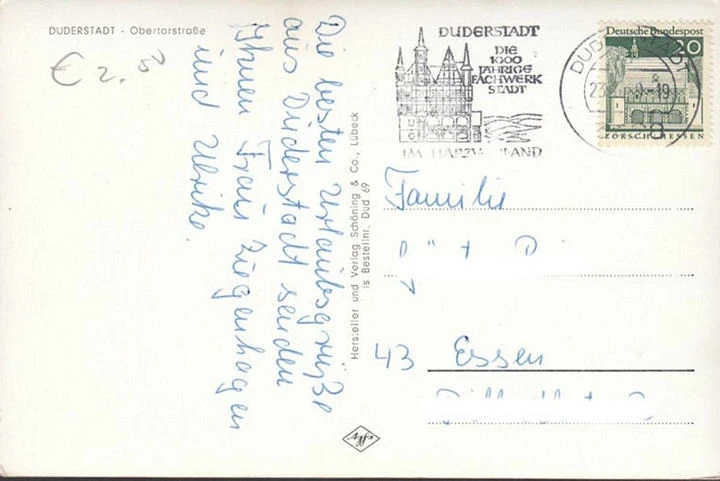 DUDERSTADT - Obertorstraße
€ 2.50
Die besten Urlaubsgrüße
aus Duderstadt senden
Ihnen Frau Ziegenhagen
und Ulrike
Hersteller und Verlag Schöning & Co., Lübeck
is Bestellnr. Dud 69
DUDERSTADT
DIE
1000
JÄHRIGE
FACHWERK
STADT
IM HARZ
LAND
Deutsche Bundespost
20
LORSCH/HESSEN
Familie
43 Essen
Agfa